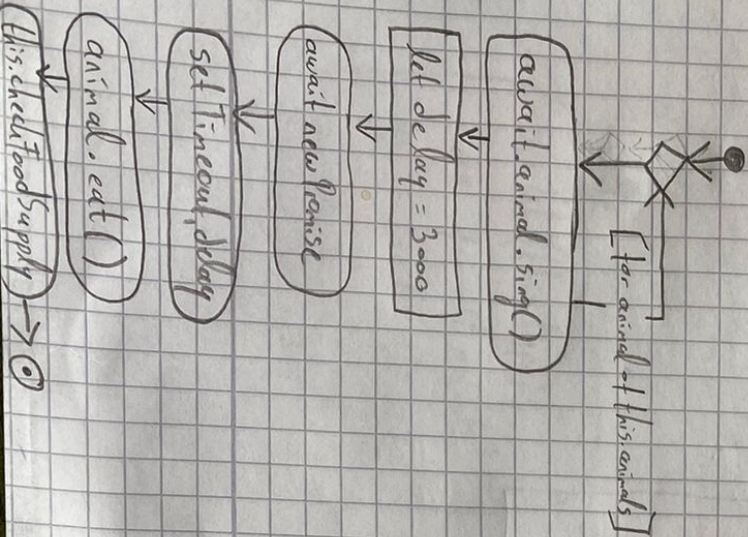 [for animal of this.animals]
await animal.sing()
let delay = 3000
await new Promise
setTimeout, delay
animal.eat()
this.checkFoodSupply